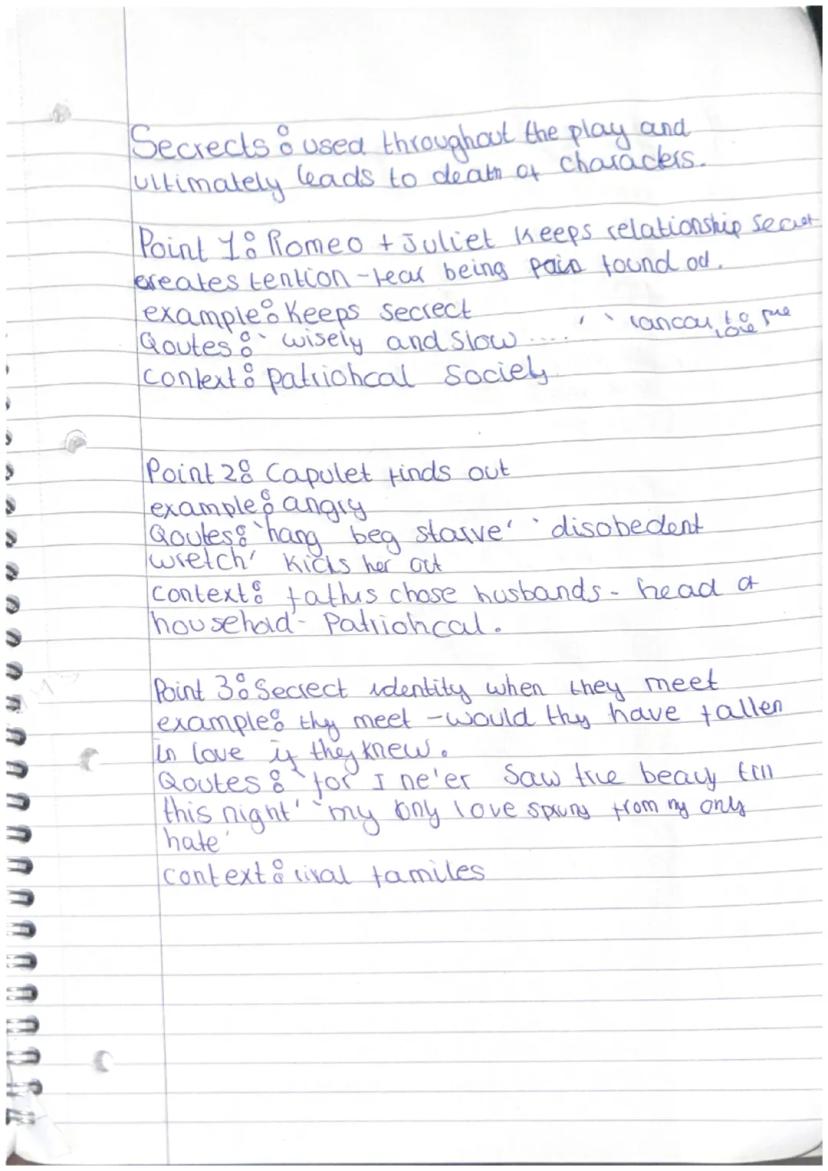 Secrects : used throughout the play and
ultimately leads to death of characters.
Point 1: Romeo + Juliet Keeps relationship secret
creates tention - fear being found out.
example: Keeps secrect
Qoutes: ' wisely and slow ....' ' rancour to pure love
context: patriohcal society
Point 2: Capulet finds out
example: angry
Qoutes: 'hang beg starve' ' disobedent
wretch' Kicks her out
context: fathers chose husbands - head of
household - Patriohcal.
Point 3: Secrect identity when they meet
example: they meet - would they have fallen
in love if they knew.
Qoutes: 'for I ne'er saw true beauty till
this night' 'my only love sprung from my only
hate'
context: rival familes